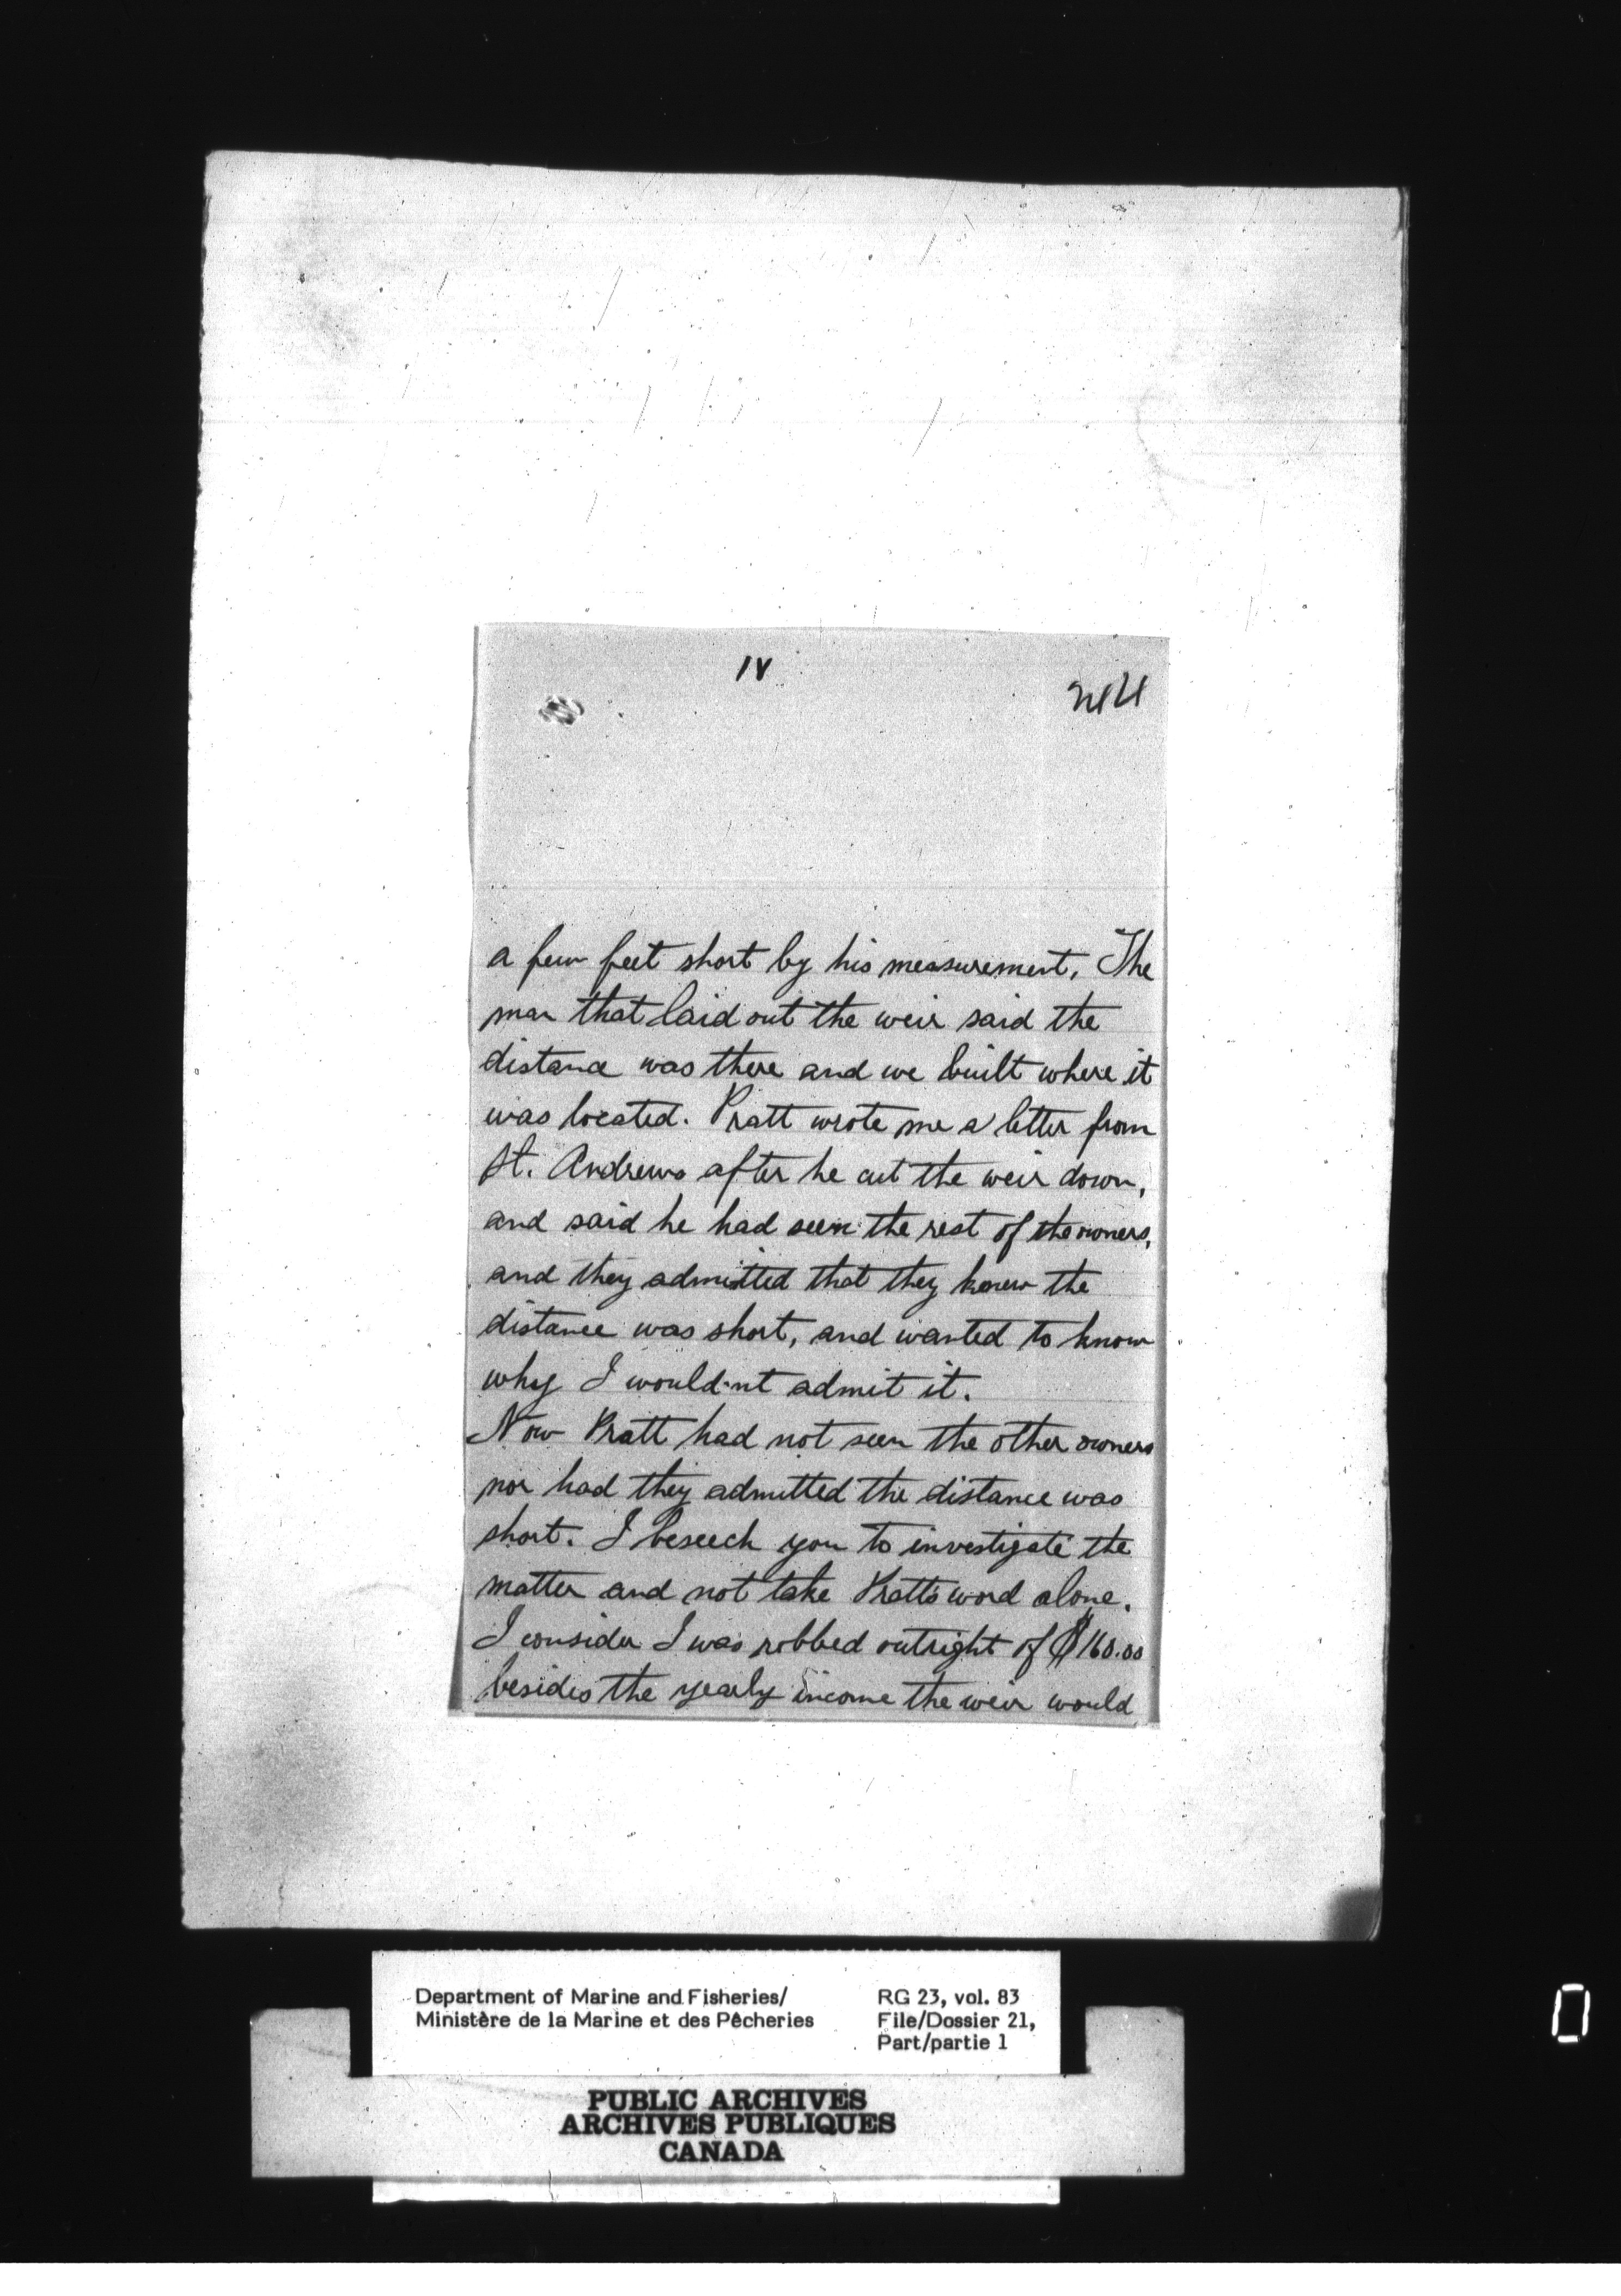 IV
244
a few feet short by his measurement. The
man that laid out the weir said the
distance was there and we built where it
was located. Pratt wrote me a letter from
St. Andrews after he cut the weir down,
and said he had seen the rest of the owners,
and they admitted that they knew the
distance was short, and wanted to know
why I would-nt admit it.
Now Pratt had not seen the other owners
nor had they admitted the distance was
short. I beseech you to investigate the
matter and not take Pratts word alone.
I consider I was robbed outright of $160.00
besides the yearly income the weir would
Department of Marine and Fisheries/
Ministère de la Marine et des Pêcheries
RG 23, vol. 83
File/Dossier 21,
Part/partie 1
PUBLIC ARCHIVES
ARCHIVES PUBLIQUES
CANADA
0